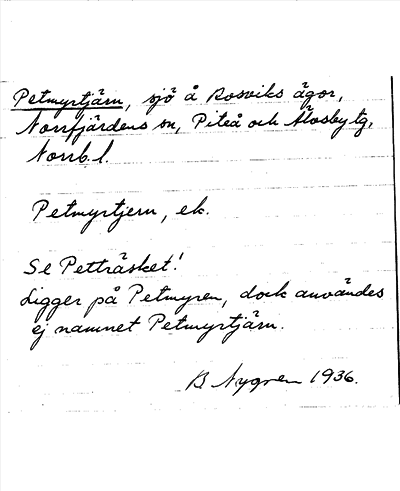 Petmyrtjärn, sjö å Rosviks ägor,
Norrfjärdens sn, Piteå och Älvsby tg,
Norrb. l.
Petmyrtjern, ek.
Se Petträsket!
Ligger på Petmyren, dock användes
ej namnet Petmyrtjärn.
B Nygren 1936.